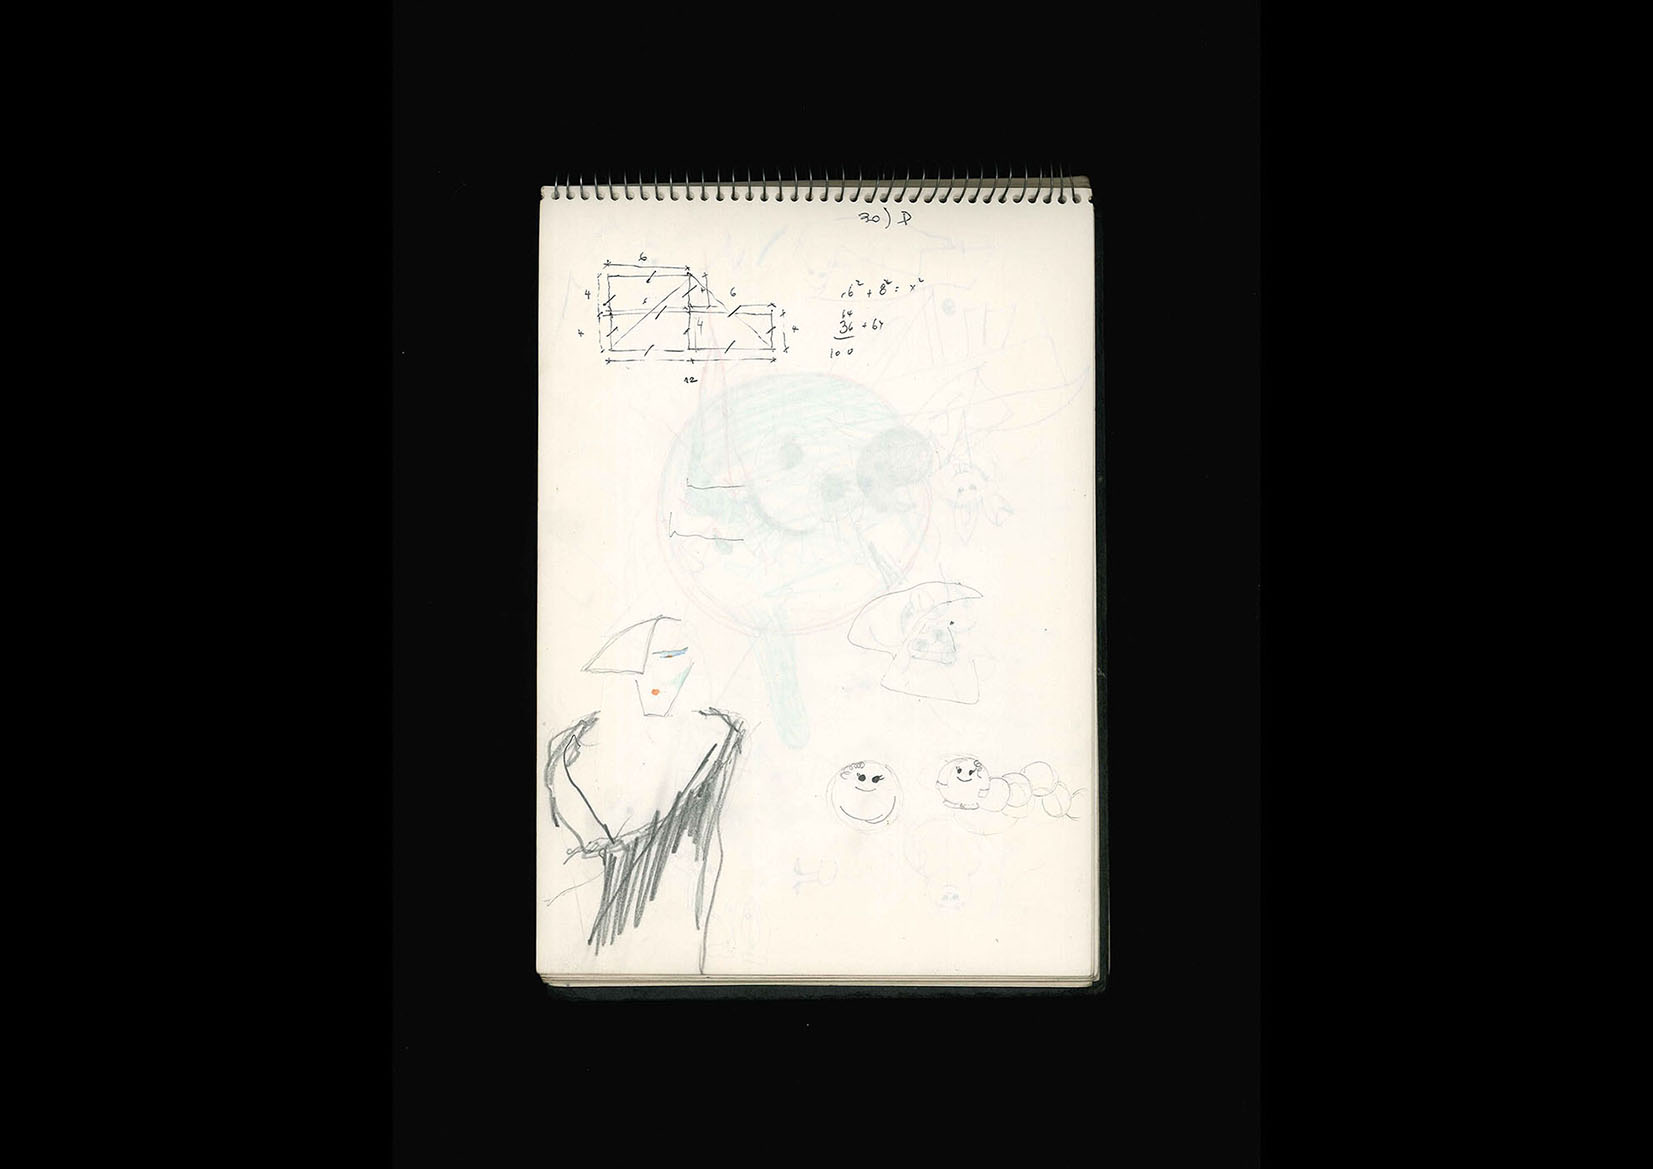 30) D
6
4
6
4
4
4
12
6² + 8² = x²
64
36 + 64
100